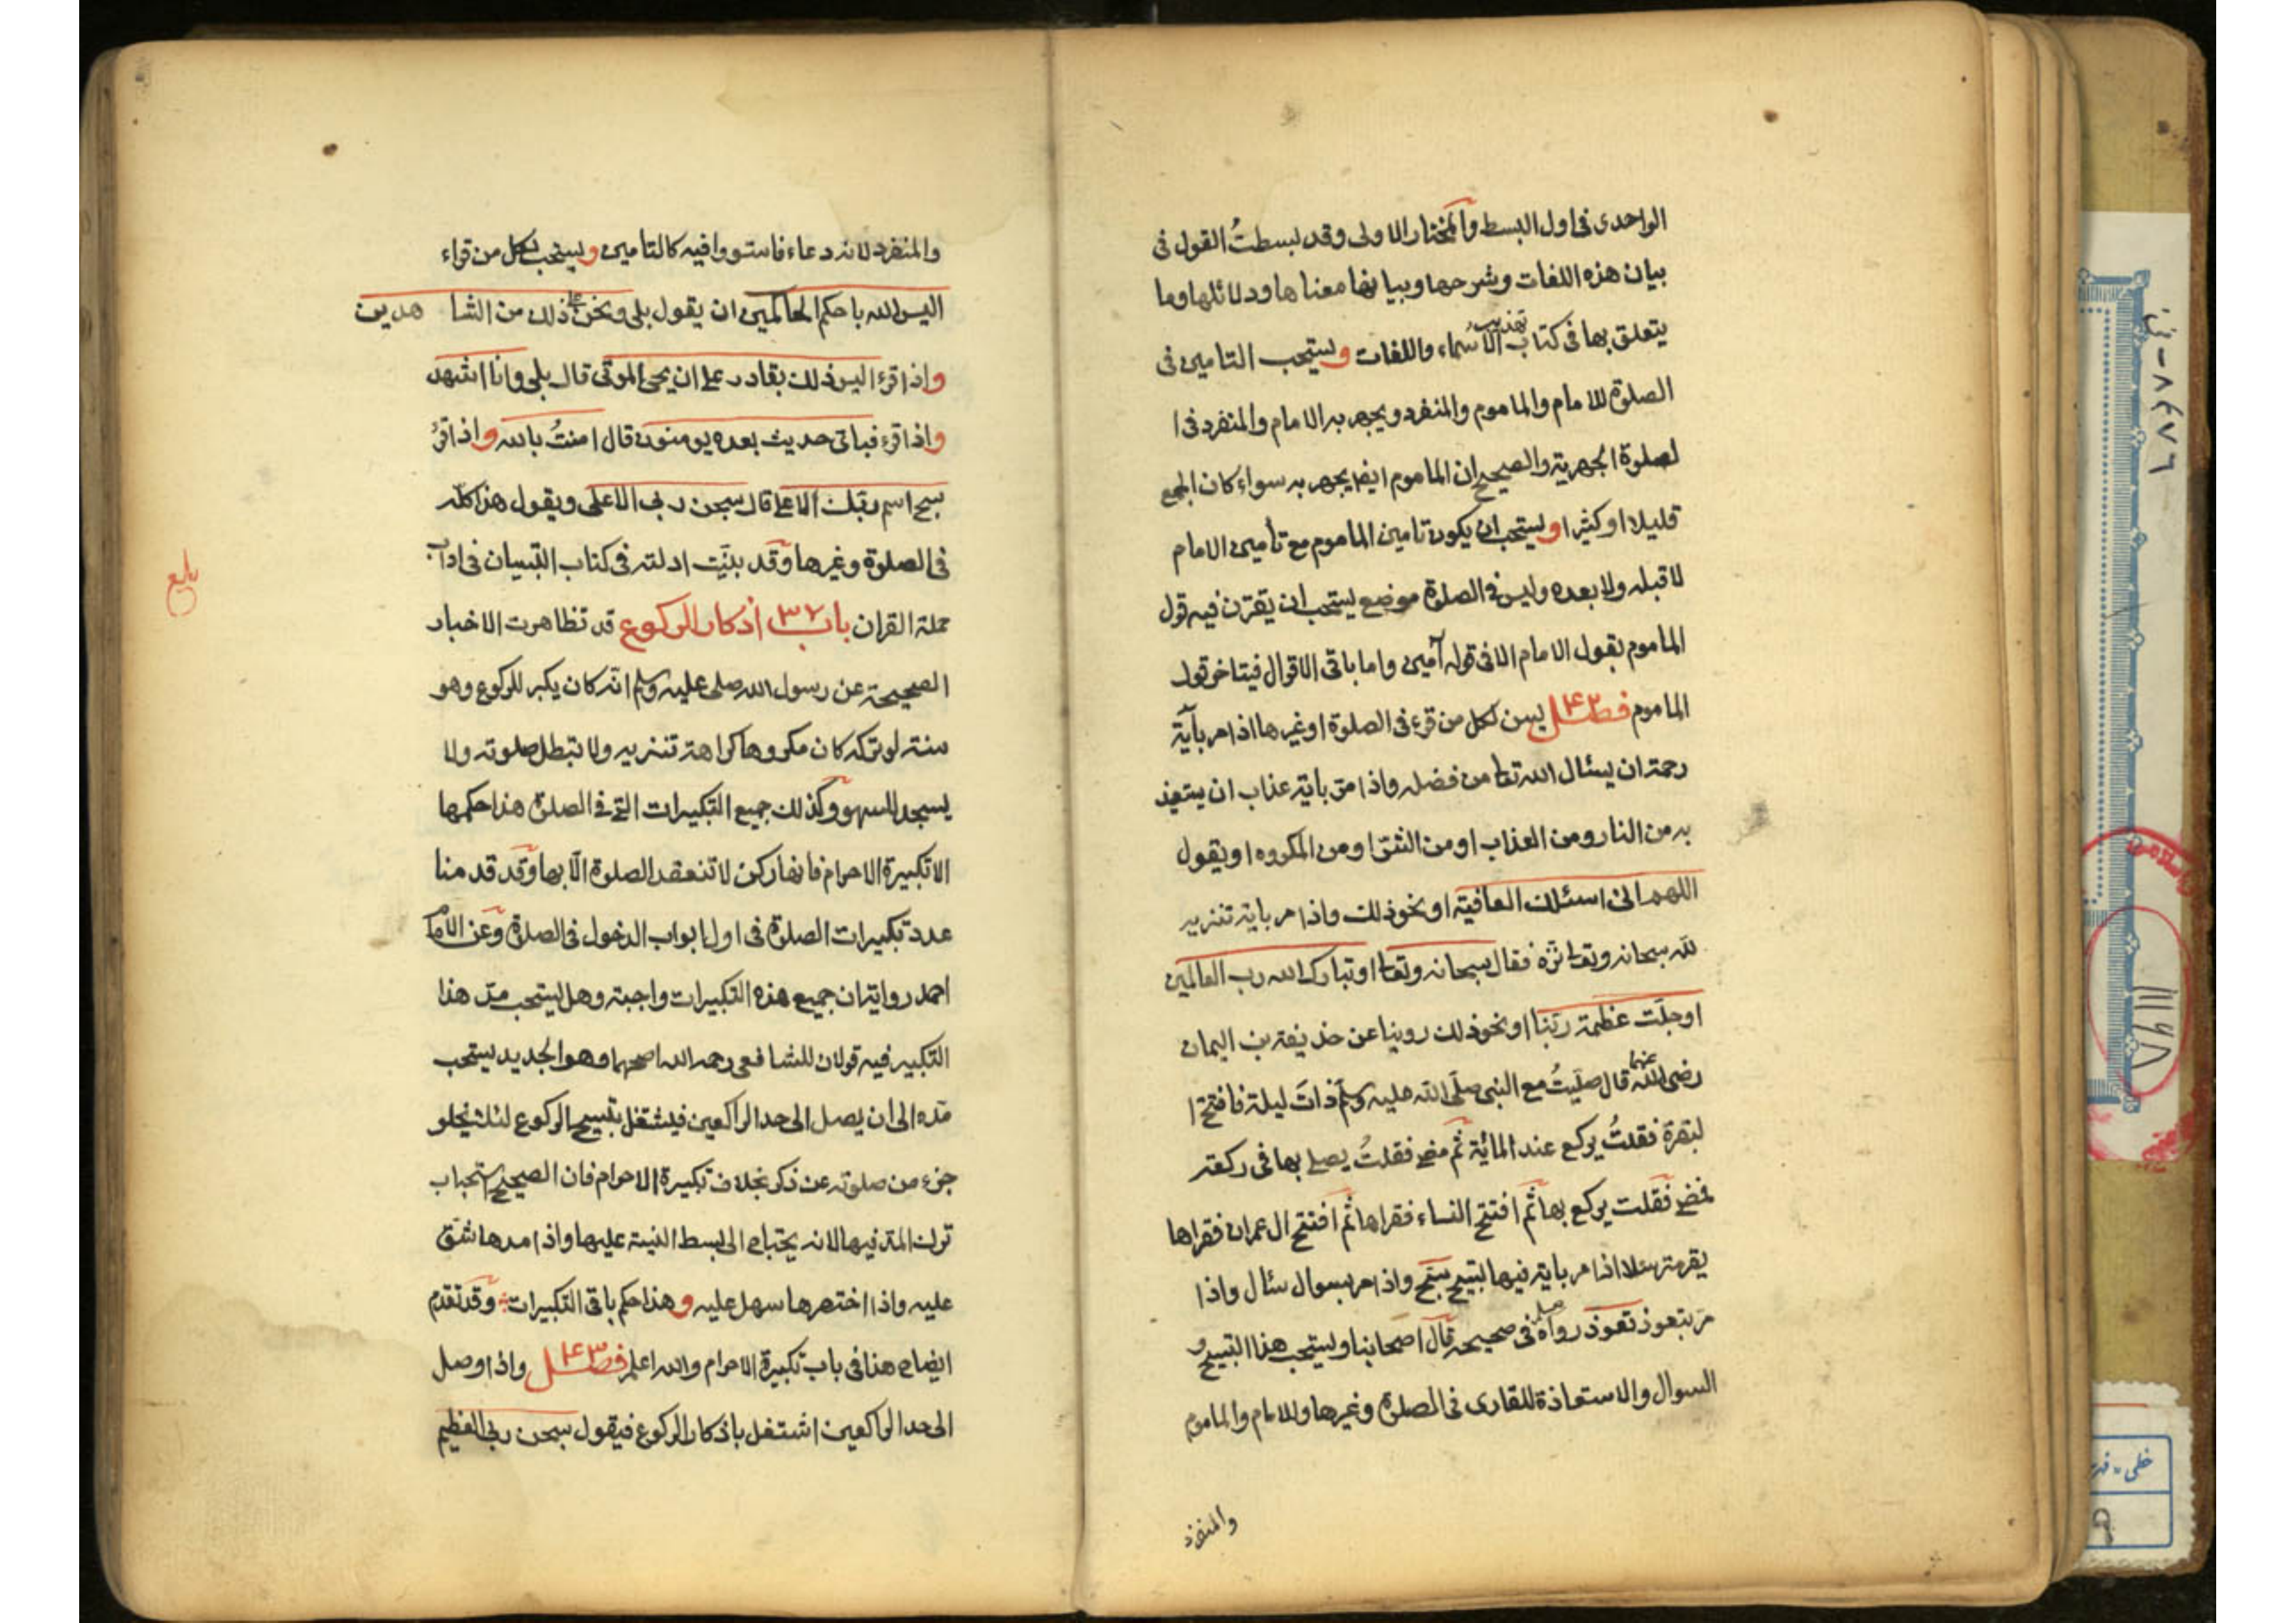 الواحدى فى اول البسط والمختار الاولى وقد بسطتُ القول فى
بيان هذه اللغات وشرحها وبيانها معناها ودلائلها وما
يتعلق بها فى كتاب تهذيب الاسماء واللغات ويستحب التامين فى
الصلوة للامام والماموم والمنفرد ويجهر به الامام والمنفرد فى ا
لصلوة الجهرية والصحيح ان الماموم ايضا يجهر به سواء كان الجمع
قليلا او كثيرا ويستحب ان يكون تامين الماموم مع تأمين الامام
لا قبله ولا بعده وليس فى الصلوة موضع يستحب ان يقترن فيه قول
الماموم بقول الامام الا فى قوله آمين واما باقى الاقوال فيتاخر قول
الماموم فصل ۴۲ يسن لكل من قرء فى الصلوة او غيرها اذا مر بآية
رحمة ان يسئال الله تعا من فضله واذا مر باية عذاب ان يستعيذ
به من النار ومن العذاب او من الشر او من المكروه او يقول
اللهم انى اسئلك العافية او نحو ذلك واذا مر باية تنزيه
لله سبحانه وتعا نزه فقال سبحانه وتعا او تبارك الله رب العالمين
او جلّت عظمة ربنا او نحو ذلك روينا عن حذيفة بن اليمان
رضى الله عنهما قال صليتُ مع النبى صلى الله عليه وسلم ذات ليلة فافتتح ا
لبقرة فقلتُ يركع عند المائة ثم مضى فقلتُ يصلى بها فى ركعة
فمضى فقلت يركع بها ثم افتتح النساء فقراها ثم افتتح ال عمران فقراها
يقرء مترسلا اذا مر باية فيها تسبيح سبح واذا مر بسوال سئال واذا
مر بتعوذ تعوذ رواه مسلم فى صحيحه قال اصحابنا ويستحب هذا التسبيح و
السوال والاستعاذة للقارى فى الصلوة وغيرها وللامام والماموم
والمنفرد
والمنفرد لانه دعاء فاستووا فيه كالتامين ويستحب لكل من قراء
اليس الله باحكم الحاكمين ان يقول بلى ونحن على ذلك من الشا هدين
واذا قرء اليس ذلك بقادر على ان يحى الموتى قال بلى وانا اشهد
واذا قرء فباى حديث بعده يومنون قال امنتُ بالله واذا قرء
سبح اسم ربك الاعلى قال سبحن ربى الاعلى ويقول هذا كله
فى الصلوة وغيرها وقد بينت ادلته فى كتاب التبيان فى اداب
حملة القران باب ۳۷ اذكار الركوع قد تظاهرت الاخبار
الصحيحة عن رسول الله صلى عليه وسلم انه كان يكبر للركوع وهو
سنة لو تركه كان مكروها كراهة تنزيه ولا تبطل صلوته ولا
يسجد للسهو وكذلك جميع التكبيرات التى فى الصلوة هذا حكمها
الا تكبيرة الاحرام فانها ركن لا تنعقد الصلوة الا بها وقد قدمنا
عدد تكبيرات الصلوة فى اول ابواب الدخول فى الصلوة وعن الامام
احمد رواية ان جميع هذه التكبيرات واجبة وهل يستحب مد هذا
التكبير فيه قولان للشافعى رحمه الله اصحهما وهو الجديد يستحب
مده الى ان يصل الى حد الراكعين فيشتغل بتسبيح الركوع لئلا يخلو
جزء من صلوته عن ذكر بخلاف تكبيرة الاحرام فان الصحيح استحباب
ترك المد فيها لانه يحتاج الى بسط النية عليها واذا مدها شق
عليه واذا اختصرها سهل عليه وهذا حكم باقى التكبيرات وقد تقدم
ايضاح هذا فى باب تكبيرة الاحرام والله اعلم فصل ۴۳ واذا وصل
الى حد الراكعين اشتغل باذكار الركوع فيقول سبحن ربى العظيم
بلغ